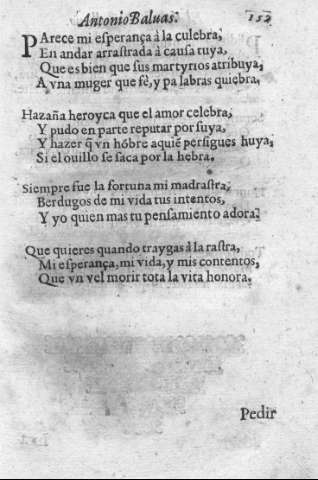 Antonio Baluas. 152
PArece mi esperança à la culebra,
En andar arrastrada à causa tuya,
Que es bien que sus martyrios atribuya,
A vna muger que fè, y pa labras quiebra.
Hazaña heroyca que el amor celebra,
Y pudo en parte reputar por suya,
Y hazer q̃ vn hõbre aquiẽ persigues huya,
Si el ouillo se saca por la hebra.
Siempre fue la fortuna mi madrastra,
Berdugos de mi vida tus intentos,
Y yo quien mas tu pensamiento adora.
Que quieres quando traygas à la rastra,
Mi esperança, mi vida, y mis contentos,
Que vn vel morir tota la vita honora.
Pedir